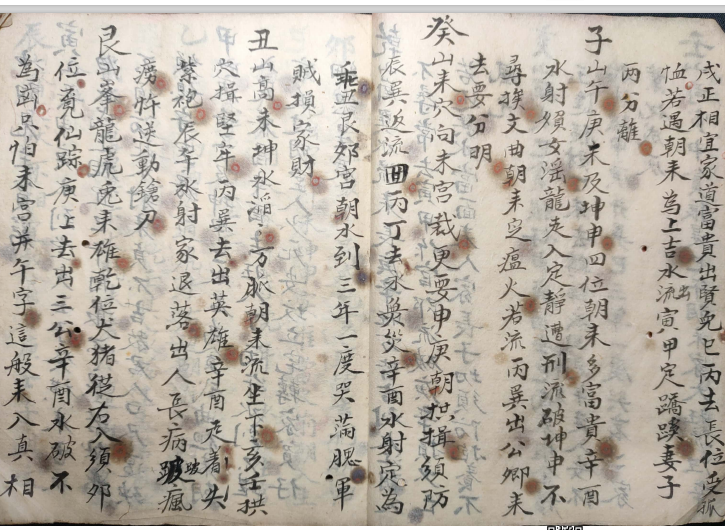 戌正相宜家道富貴出賢免巳丙去長位守孤
恤若遇朝来為上吉水流出寅甲定蹻蹊妻子
兩分離
子山午庚未及坤申四位朝来多富貴辛酉
水射須女滛龍走入定靜遭刑流破坤申不
尋挨文曲朝来見瘟火若流丙巽出公卿来
去要分明
癸山来穴向未宮裁更要申庚朝拱揖須防
辰巽返流囬丙丁去水災辛酉水射定為
乖丑艮卯宮朝水到三年一度哭滿腮軍
賊損家財
丑山高未坤水滔万脈朝来流生下亥壬拱
穴揖堅牢丙巽去出英雄辛酉走着头
紫袍辰午水射家退落出人長病跛瘋
癆忤送動鎗刀
艮山峯龍虎兎来雄乾位犬猪從右入須卯
位覓仙踪庚上去出三公辛酉水破不
為凶只怕未宮并午字這般来入真相